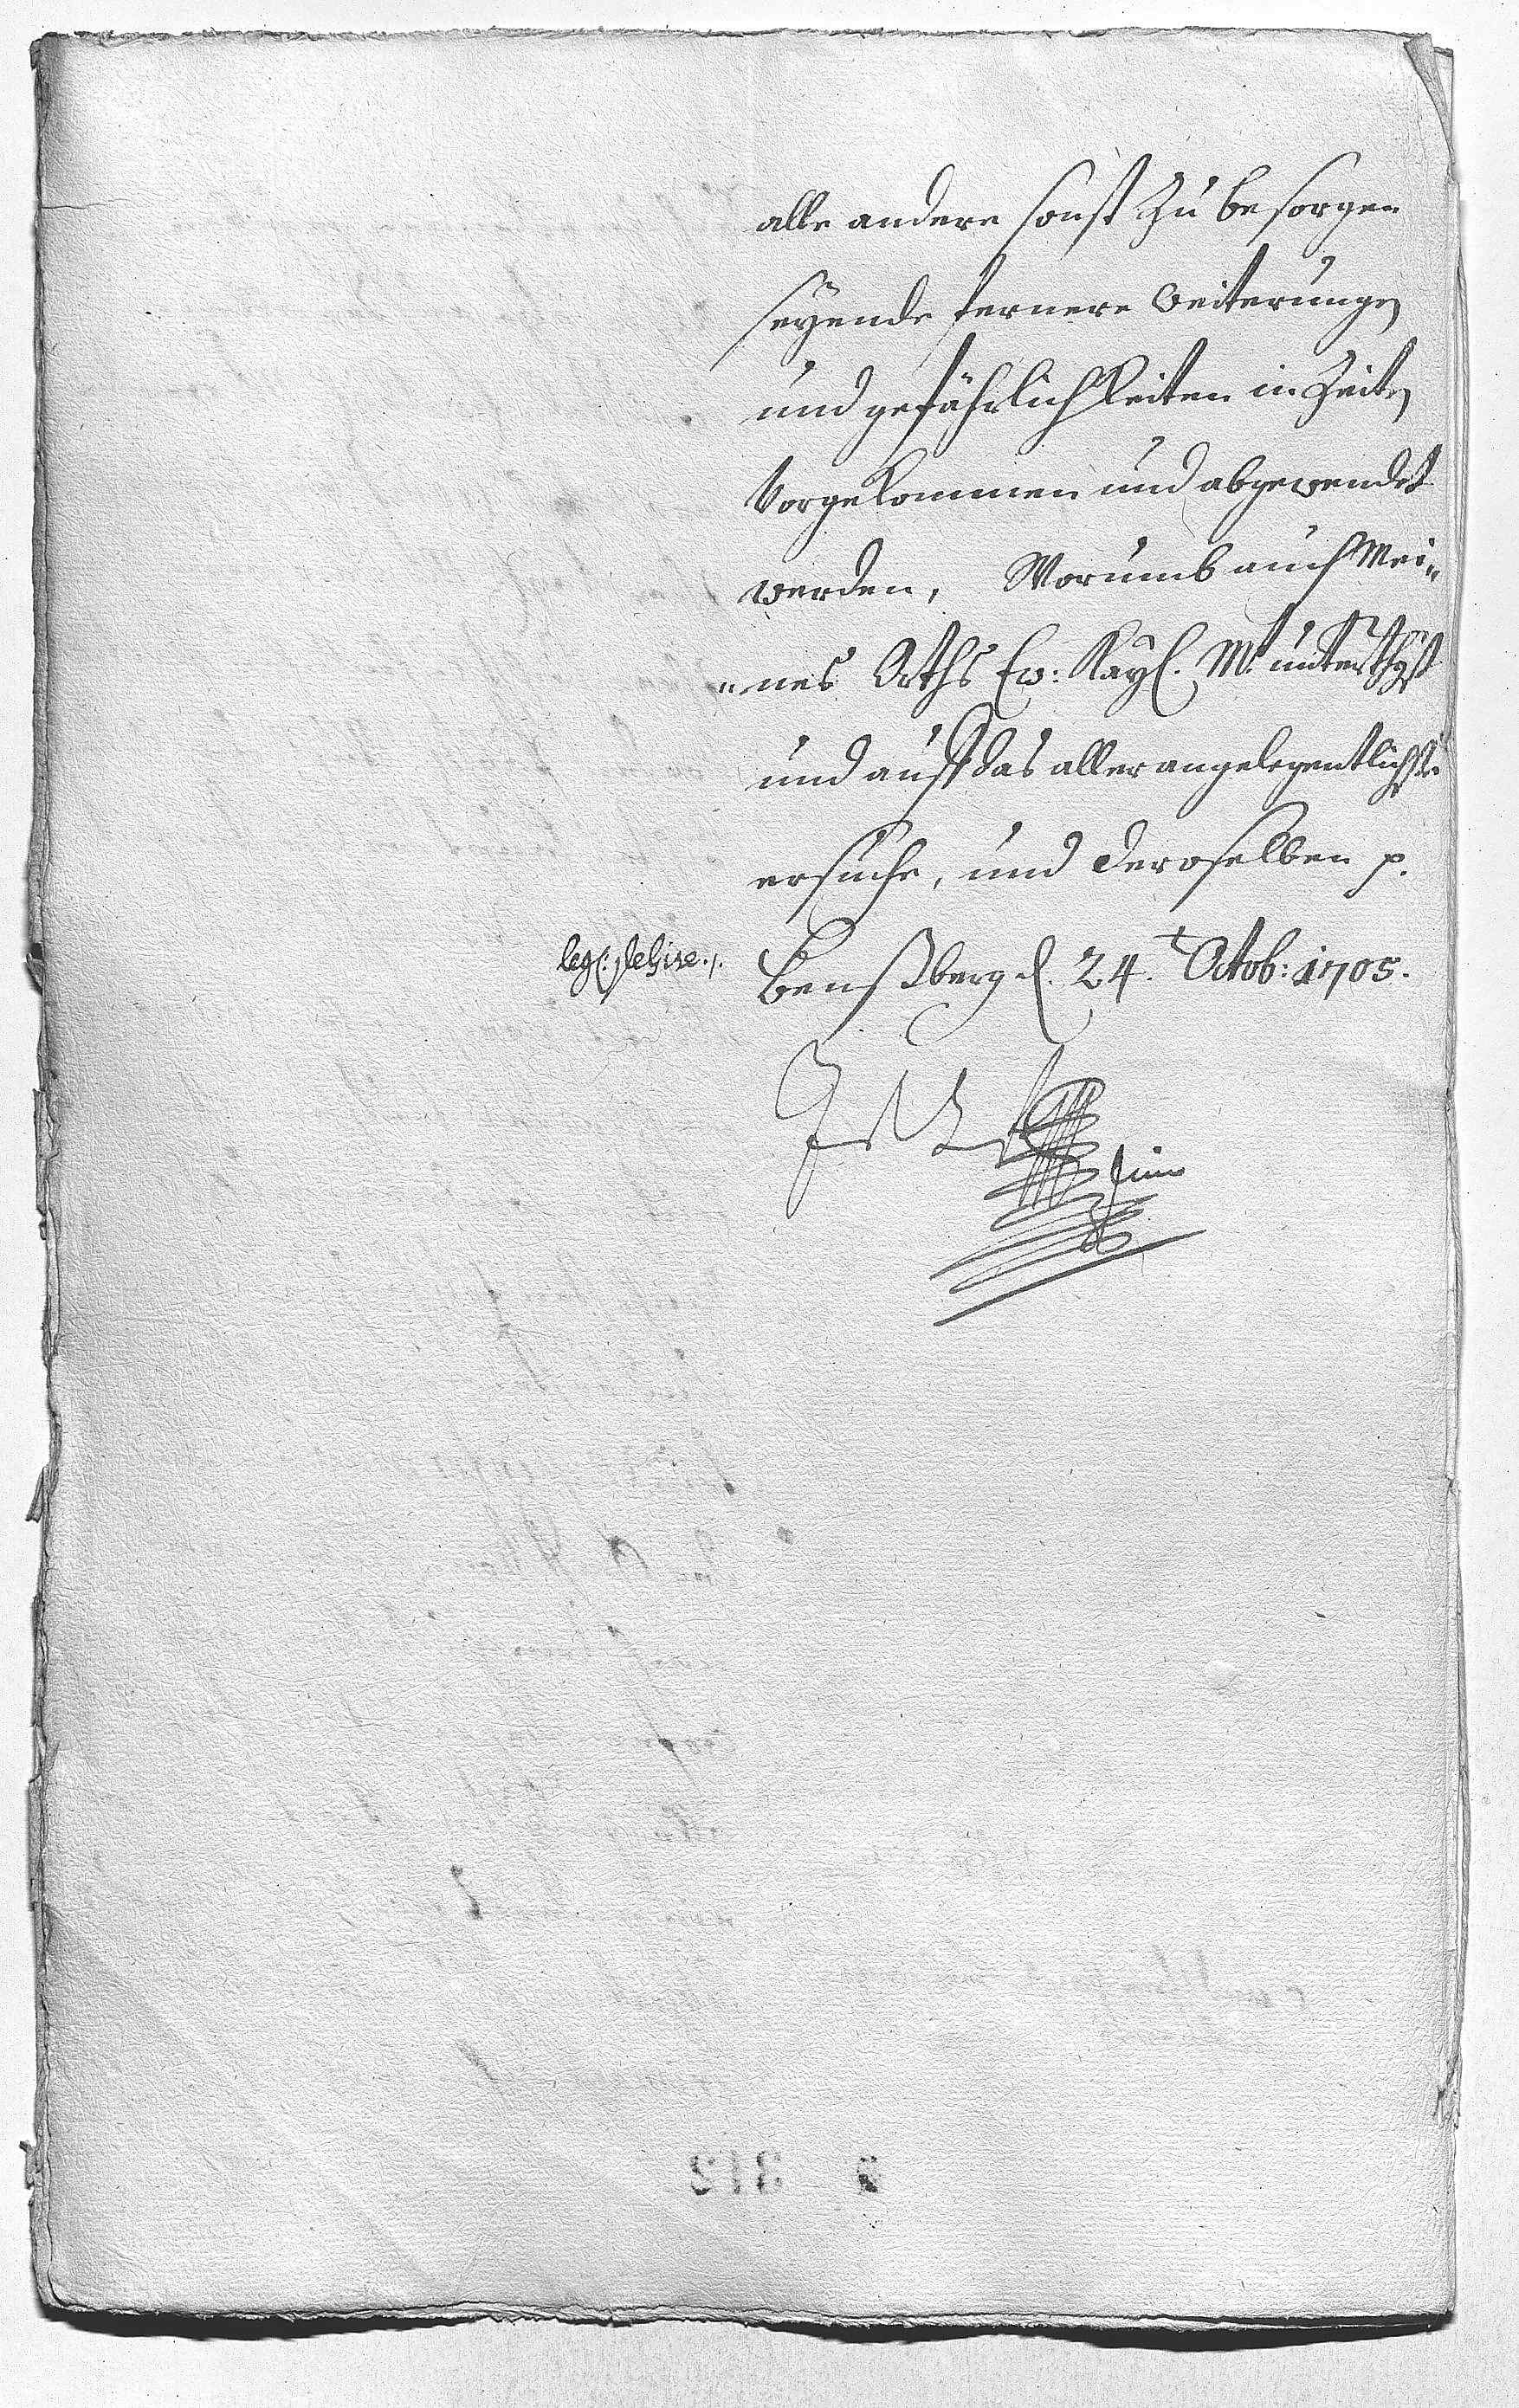 alle andere sonst zu besorgen
seyende fernere weiterungen
und gefährlichkeiten in Zeiten
vorgekommen und abgewendet
werden, Worumb auch Mei„
„nes Orths Ew: Kayl. Mt. unterthgst
und auff das aller angelegentlichste
ersuche, und deroselben p.
Benßberg d. 24t Octob: 1705.